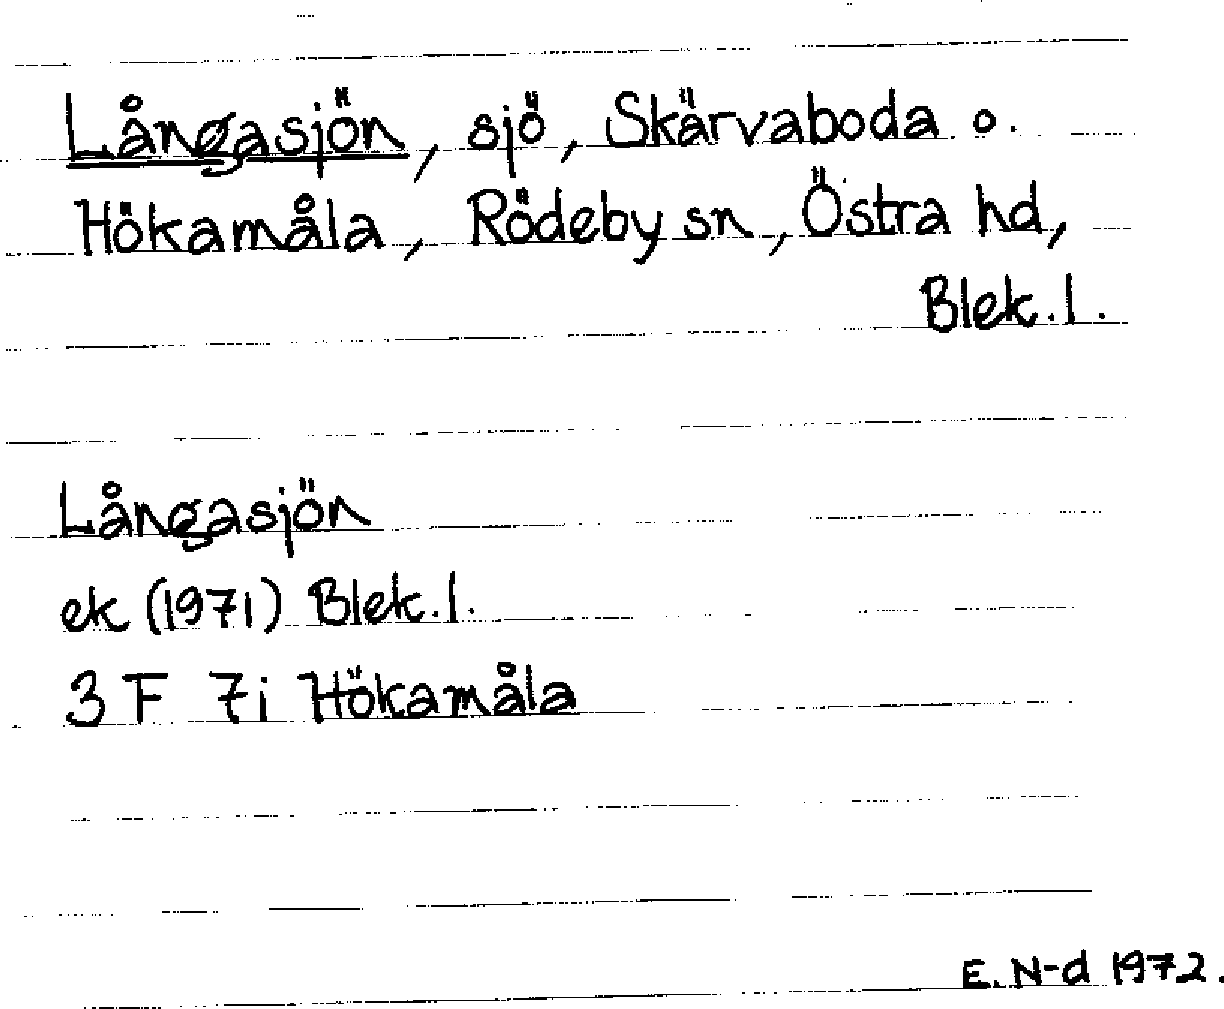 Långasjön, sjö, Skärvaboda o.
Hökamåla, Rödeby sn, Östra hd,
Blek. l.
Långasjön
ek (1971) Blek. l.
3 F 7i Hökamåla
E. N-d 1972.